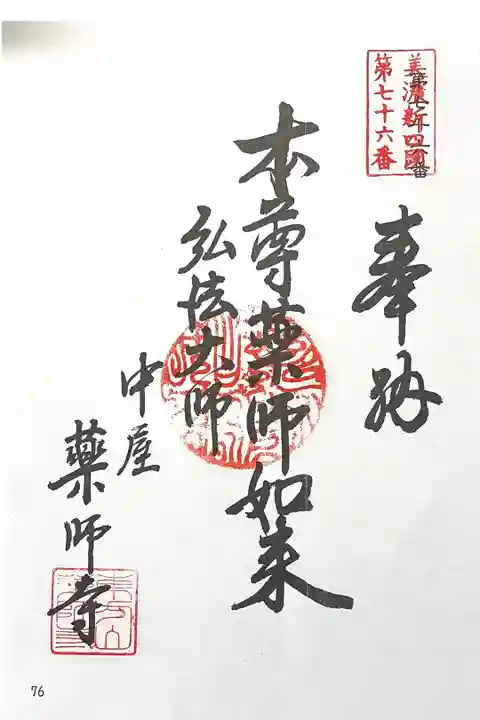 美濃新四國
第七十六番
奉納
本尊薬師如来
弘法大師
中屋
薬師寺
76